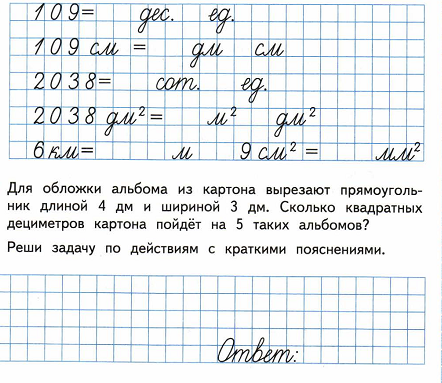 109= дес. ед.
109 см = дм см
2038= сот. ед.
2038 дм² = м² дм²
6 км= м 9 см² = мм²
Для обложки альбома из картона вырезают прямоуголь-
ник длиной 4 дм и шириной 3 дм. Сколько квадратных
дециметров картона пойдёт на 5 таких альбомов?
Реши задачу по действиям с краткими пояснениями.
Ответ: